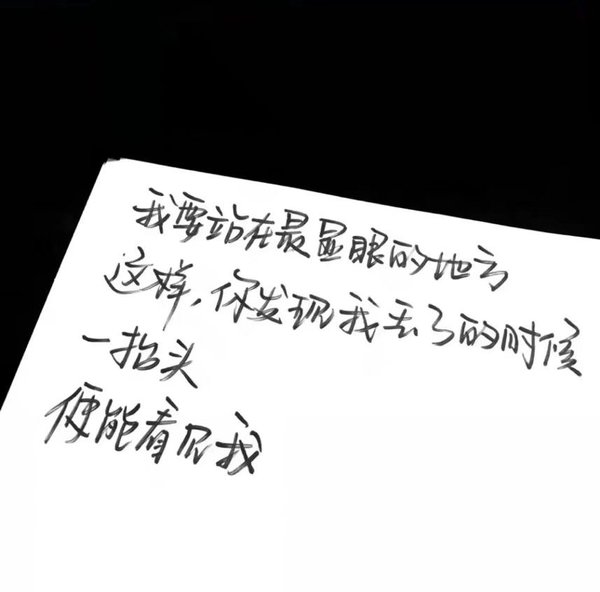 我要站在最显眼的地方
这样，你发现我丢了的时候
一抬头
便能看见我